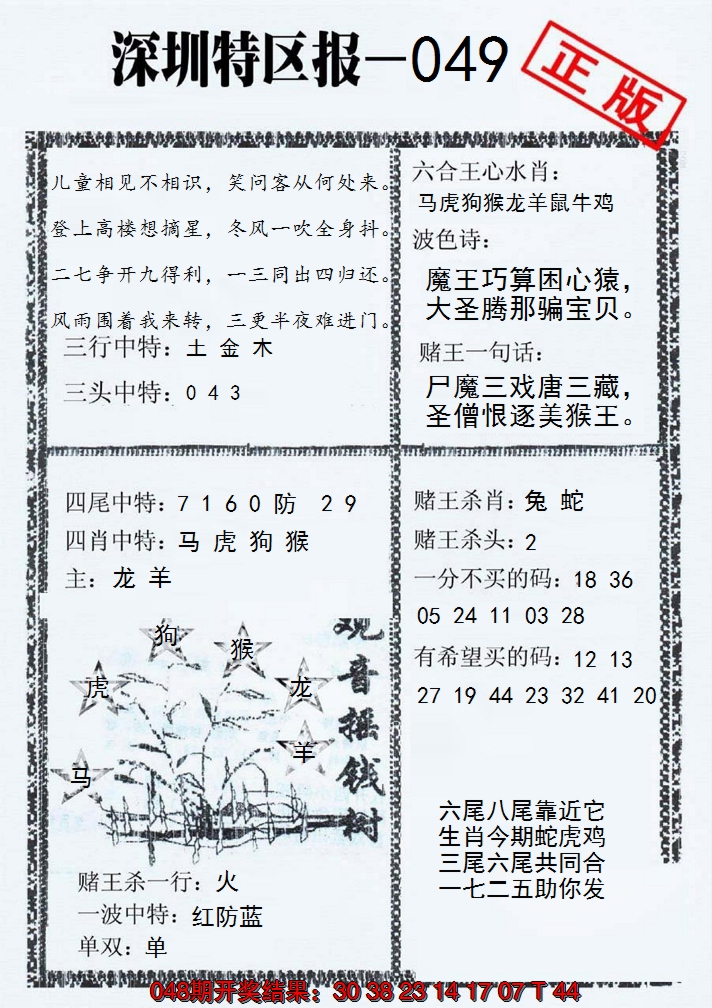 深圳特区报—049
正版
儿童相见不相识，笑问客从何处来。
登上高楼想摘星，冬风一吹全身抖。
二七争开九得利，一三同出四归还。
风雨围着我来转，三更半夜难进门。
三行中特：土 金 木
三头中特：0 4 3
六合王心水肖：
马虎狗猴龙羊鼠牛鸡
波色诗：
魔王巧算困心猿，
大圣腾那骗宝贝。
赌王一句话：
尸魔三戏唐三藏，
圣僧恨逐美猴王。
四尾中特：7 1 6 0 防 2 9
四肖中特：马 虎 狗 猴
主：龙 羊
狗
猴
虎
龙
羊
马
观音摇钱树
赌王杀一行：火
一波中特：红防蓝
单双：单
赌王杀肖：兔 蛇
赌王杀头：2
一分不买的码：18 36
05 24 11 03 28
有希望买的码：12 13
27 19 44 23 32 41 20
六尾八尾靠近它
生肖今期蛇虎鸡
三尾六尾共同合
一七二五助你发
048期开奖结果：30 38 23 14 17 07 T 44